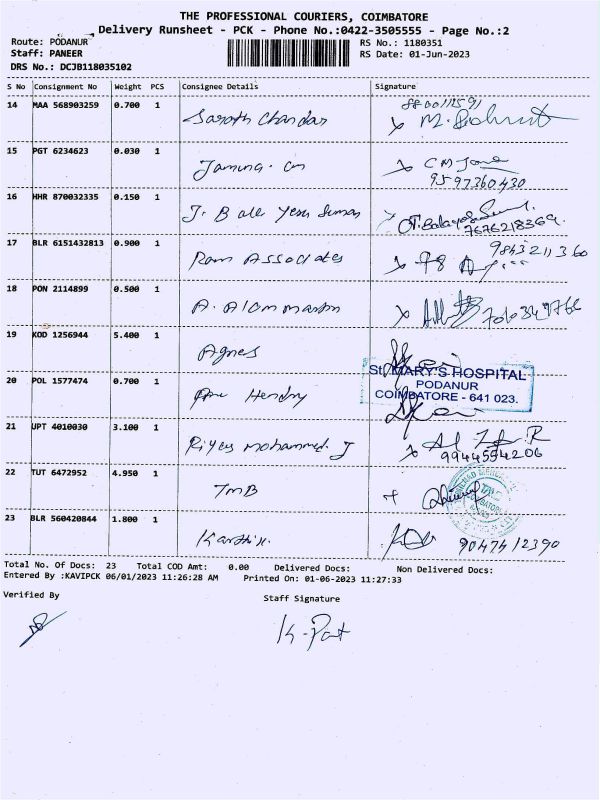 THE PROFESSIONAL COURIERS, COIMBATORE
Delivery Runsheet - PCK - Phone No.:0422-3505555 - Page No.:2
Route: PODANUR
RS No.: 1180351
Staff: PANEER
RS Date: 01-Jun-2023
DRS No.: DCJB118035102
S No Consignment No Weight PCS Consignee Details Signature
14 MAA 568903259 0.700 1 Sarath Chandar
15 PGT 6234623 0.030 1
9597360430
16 HHR 870032335 0.150 1
7676218369
17 BLR 6151432813 0.900 1 Ram Associates 9843211360
18 PON 2114899 0.500 1
19 KOD 1256944 5.400 1 Agnes
St. MARY'S HOSPITAL
PODANUR
COIMBATORE - 641 023.
20 POL 1577474 0.700 1 Hendry
21 UPT 4010030 3.100 1 Riyas Mohammed J
9944554206
22 TUT 6472952 4.950 1 TMB
23 BLR 560420844 1.800 1 Karthik. 9047412390
Total No. Of Docs: 23 Total COD Amt: 0.00 Delivered Docs: Non Delivered Docs:
Entered By :KAVIPCK 06/01/2023 11:26:28 AM Printed On: 01-06-2023 11:27:33
Verified By
Staff Signature